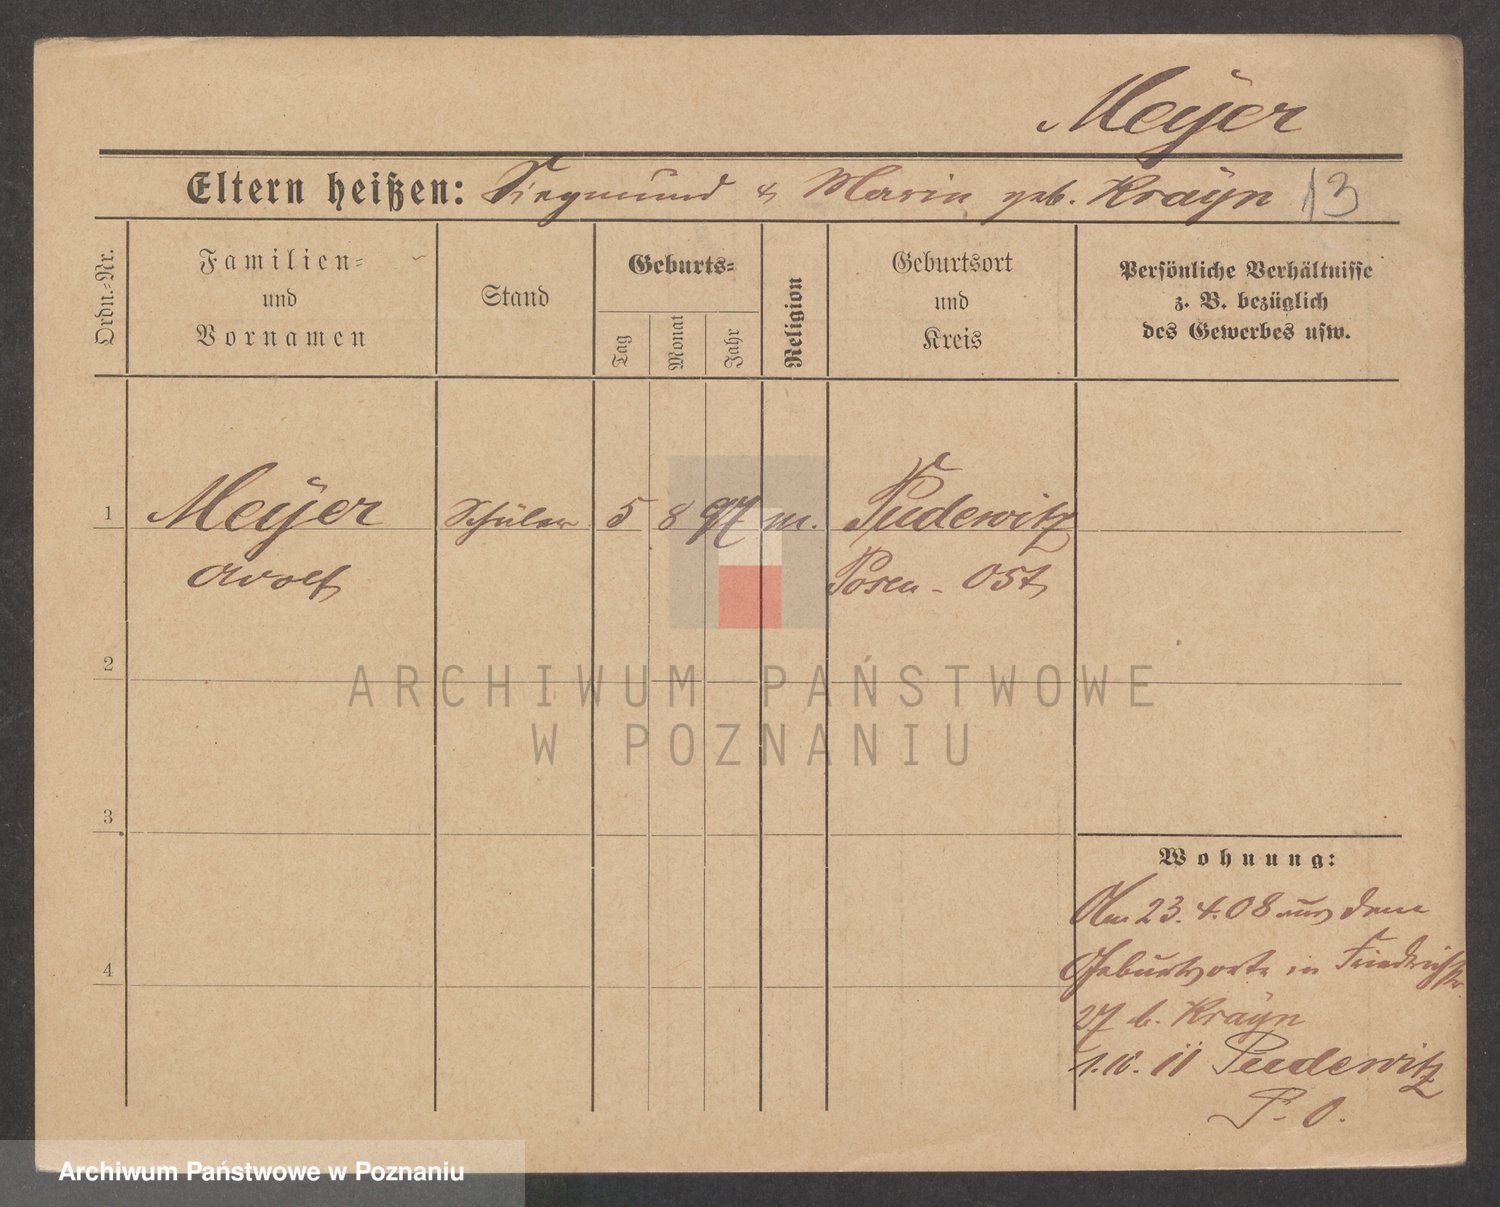 Meÿer
Eltern heißen: Siegmund & Marie geb. Kraÿn 13
Ordn.-Nr.
Familien-
und
Vornamen
Stand
Geburts-
Tag
Monat
Jahr
Religion
Geburtsort
und
Kreis
Persönliche Verhältnisse
z. B. bezüglich
des Gewerbes usw.
1 Meÿer Schüler 5 8 97 m. Pudewitz
Adolf Posen - Ost
2
3
4
Wohnung:
Am 23.4.08 aus dem
Geburtsorte in Friedrichstr
27 b. Kraÿn
11 Pudewitz
P. O.
ARCHIWUM PAŃSTWOWE
W POZNANIU
Archiwum Państwowe w Poznaniu